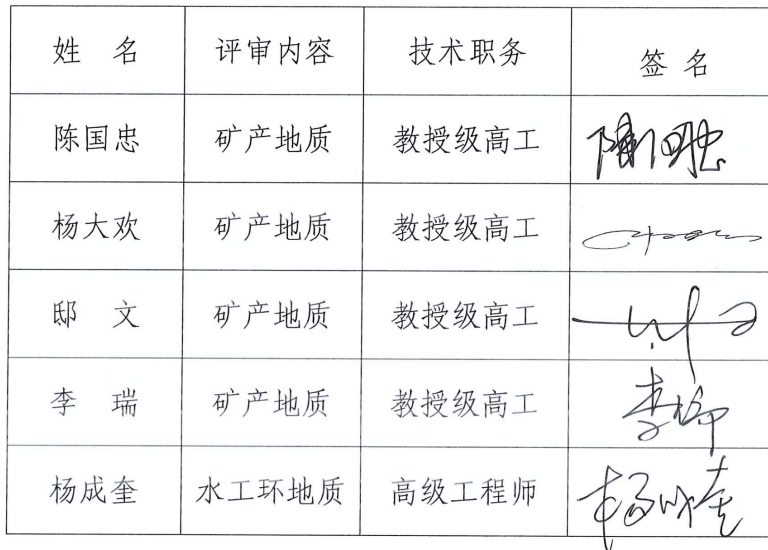 姓 名 评审内容 技术职务 签 名
陈国忠 矿产地质 教授级高工
杨大欢 矿产地质 教授级高工
邸 文 矿产地质 教授级高工
李 瑞 矿产地质 教授级高工
杨成奎 水工环地质 高级工程师 杨成奎